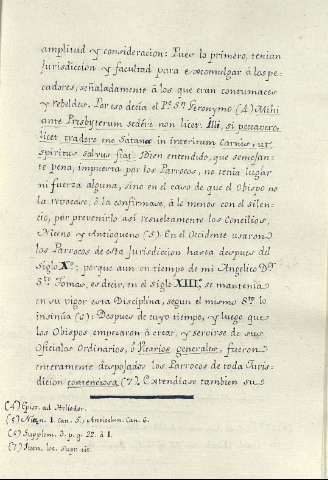 amplitud y consideracion: Pues lo primero, tenian
Jurisdiccion y facultad para excomulgar á los pe-
cadores, señaladamente á los que eran contumaces
y rebeldes. Por eso decia el P.e S.n Geronymo (4) Mihi
ante Presbyterum sedere non licet. Illi, si peccavero
licet tradere me Sátanæ in interitum Carnis, ut
spiritus salvus fiat. Bien entendido, que semejan-
te pena, impuesta por los Parrocos, no tenia lugar
ni fuerza alguna, sino en el caso de que el Obispo no
la revocase, ó la confirmase, á lo menos con el silen-
cio, por prevenirlo así resueltamente los Concilios,
Niceno y Antioqueno (5). En el Occidente usaron
los Parrocos de esta Jurisdiccion hasta despues del
Siglo X.º: porque aun en tiempo de mi Angelico D.r
S.to Tomas, es decir, en el siglo XIII.º, se mantenia
en su vigor esta Disciplina, segun el mismo S.to lo
insinúa (6): Despues de cuyo tiempo, y luego que
los Obispos empezaron á crear, y servirse de sus
Oficiales Ordinarios, ó Vicarios generales, fueron
enteramente despojados los Parrocos de toda Juris-
diccion contenciosa (7). Extendiase tambien su
(4) Epist. ad Heliodor.
(5) Nicæn. 1. Can. 5., Antiochen. Can. 6.
(6) Supplem. 3. p. q. 22. á 1.
(7) Juen. loc. supr. cit.